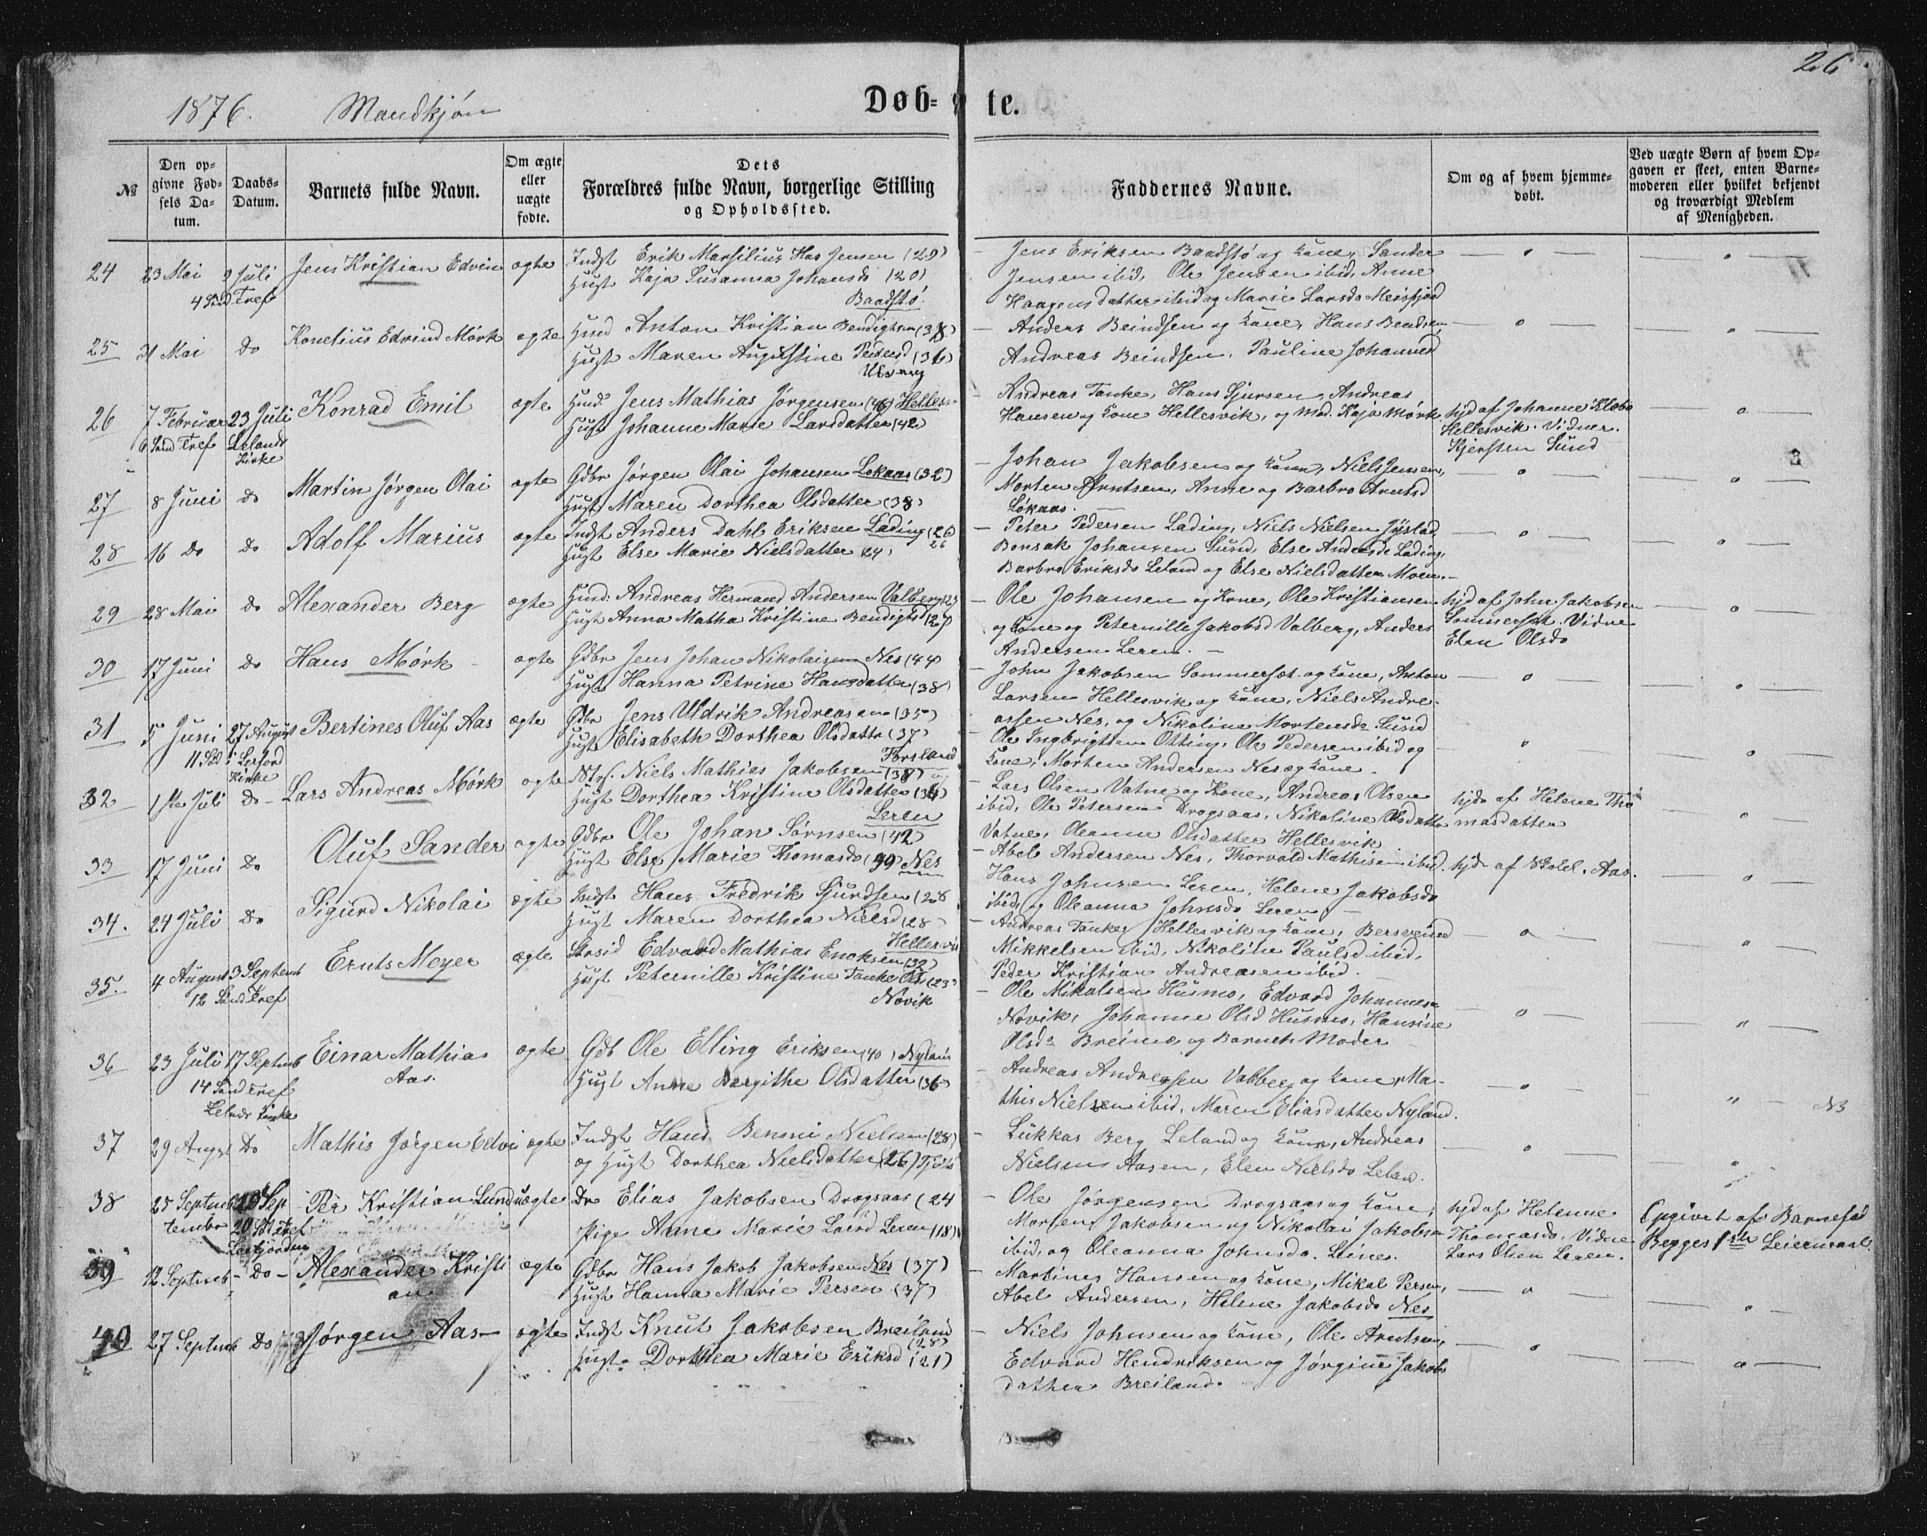 26
1876. Mandkjøn
Døbte.
№
Den opgivne Fødsels Datum.
Daabs-Datum.
Barnets fulde Navn.
Om ægte eller uægte fødte.
Dets Forældres fulde Navn, borgerlige Stilling og Opholdssted.
Faddernes Navne.
Om og af hvem hjemmedøbt.
Ved uægte Børn af hvem Opgaven er skeet, enten Barnemoderen eller hvilket bekjendt og troværdigt Medlem af Menigheden.
24 23 Mai 9 Juli Jens Kristian Edvin ægte Indst Erik Marsilius Jensen (29)
4 Sønd Tref Hust Kaja Susanna Johansd (20)
Baadstø
Jens Eriksen Baadstø og Kone, Sander
Jensen ibid, Ole Jensen ibid, Anne
Haagensdatter ibid og Marie Larsda Meisfjord
25 31 Mai do Konelius Edvind Mørk ægte Hund Anton Kristian Bendigtsen (38)
Hust Maren Augustine Pedersd (36)
Anders Beindsen og Kone, Hans Bendsen
Andreas Beindsen, Pauline Johannsd
26 7 Februar 23 Juli Konrad Emil ægte Hund. Jens Mathias Jørgensen Hellesv
6 Sønd Tref Lelands Kirke Hust Johanne Marie Larsdatter (42)
Andreas Tanke, Hans Sjursen, Andreas
Hansen og Kone Hellesvik, og Mad. Kaja Mørk
hjd af Johanne Klæbo
Hellesvik. Vidner.
Kjersten Sund
27 8 Juni do Martin Jørgen Olai ægte Gdbr Jørgen Olai Johansen Løkaas (32)
Hust Maren Dorthea Olsdatter (38)
Johan Jakobsen og Kone, Niels Jensen,
Morten Arntsen, Anne og Barbro Arntsd
Løkaas.
28 16 do do Adolf Marius ægte Indst Anders Dahl Eriksen Lading (26)
Hust Else Marie Nielsdatter 24)
Peter Pedersen Lading, Niels Nielsen
Bonsak Johansen Sund, Else Andersda Lading,
Barbro Eriksda Leland og Else Nielsdatter Moen.
29 28 Mai do Alexander Berg ægte Hund: Andreas Hermand Andersen Valberg
Hust Anna Matha Kristine Bendigtsd (27)
Ole Johansen og Kone, Ole Kristiansen
og Kone og Peternille Jakobsd Valberg, Anders
Andersen Leren.
hjd af John Jakobsen
Sommerset. Vidne
Elen Olsda
30 17 Juni do Hans Mørk ægte Gdbr Jens Johan Nikolaisen Nes (44)
Hust Hanna Petrine Hansdatter (38)
John Jakobsen Sommerset og Kone, Anton
Larsen Hellesvik og Kone, Niels Andre-
assen Nes, og Nikoline Mortensda Sund
31 5 Juni 27 August Bertines Oluf Aas ægte Gdbr Jens Uldrik Andreasen (35)
Hust Elisabeth Dorthea Olsdatter (37)
Forsland
Ole Ingbrigtsen Otting, Ole Pedersen ibid og
Kone, Morten Andersen Nes og Kone.
32 1ste Juli do Lars Andreas Mørk ægte Niels Mathias Jakobsen (38)
Hust Dorthea Kristine Olsdatter (36)
Leren
Lars Olsen Vatne og Kone, Andreas Olsen
ibid, Ole Petersen Dragsaas, Nikoline Olsdatter
Vatne, Oleanne Olsdatter Hellesvik
hjd af Helene Tho
masdatter
33 17 Juni do Oluf Sander ægte Gdbr Ole Johan Sørnsen (42)
Hust Else Marie Thomasda (39) Nes
Abel Andersen Nes, Thorvald Mathisen ibid.
Hans Johnsen Leren, Helene Jakobsda
ibid, og Oleanna Johnsda Leren
34. 24 Juli do Sigurd Nikolai ægte Indst Hans Fredrik Sjurdsen (28
Hust Maren Dorthea Nielsd (28)
Hellesvik
Andreas Tanke Hellesvik og Kone, Bersvend
Mikkelsen ibid, Nikoline Paulsd ibid,
Peder Kristian Andreasen ibid.
35. 4 August 3 Septemb Ernts Meyer ægte Edvard Mathias Enoksen (32)
12 Sønd Tref Hust Peternille Kristine Tanke (23)
Novik
Ole Mikalsen Husmo, Edvard Johannesen
Novik, Johanne Olsd Husmo, Hansine
Olsda Breimo og Barnets Moder
36 23 Juli 17 Septemb Einar Mathias Aas. ægte Gdb Ole Elling Eriksen (40) Nyland
14 Sønd Tref Lelands Kirke Hust Anne Bergithe Olsdatter (36)
Andreas Andresen Vabbe og Kone, Ma-
this Nielsen ibid, Maren Eliasdatter Nyland.
NB
37 29 August do Mathis Jørgen Edvi ægte Indst Hans Benoni Nielsen (28)
og Hust Dorthea Nielsdatter (26)
Lukkas Berg Leland og Kone, Andreas
Nielsen Aasen, Elen Nielsda Leland.
38 25 Septembr Per Kristian Lund uægte Dr Elias Jakobsen Dragsaas (24
Pige Anne Marie Larsd Leren (18)
Ole Jørgensen Dragsaas og Kone,
Morten Jakobsen og Nikolai Jakobsen
ibid, og Oleanna Johnsda Leines.
hjd af Helenne
Thomasda. Vidne
Lars Olsen Leren.
Opgivet af Barnefad
Begges 1ste Leiermaal
39 12 Septemb do Alexander Kristian ægte Gdbr Hans Jakob Jakobsen Nes (37)
Hust Hanna Marie Persen (37)
Martines Hansen og Kone, Mikal Persen,
Abel Andersen, Helene Jakobsda Nes
40 27 Septemb do Jørgen Aas ægte Indst Knut Jakobsen Breiland (28)
Hust. Dorthea Marie Eriksd (21)
Niels Johnsen og Kone, Ole Arntsen,
Edvard Hendriksen og Jørgine Jakobs
datter Breiland.